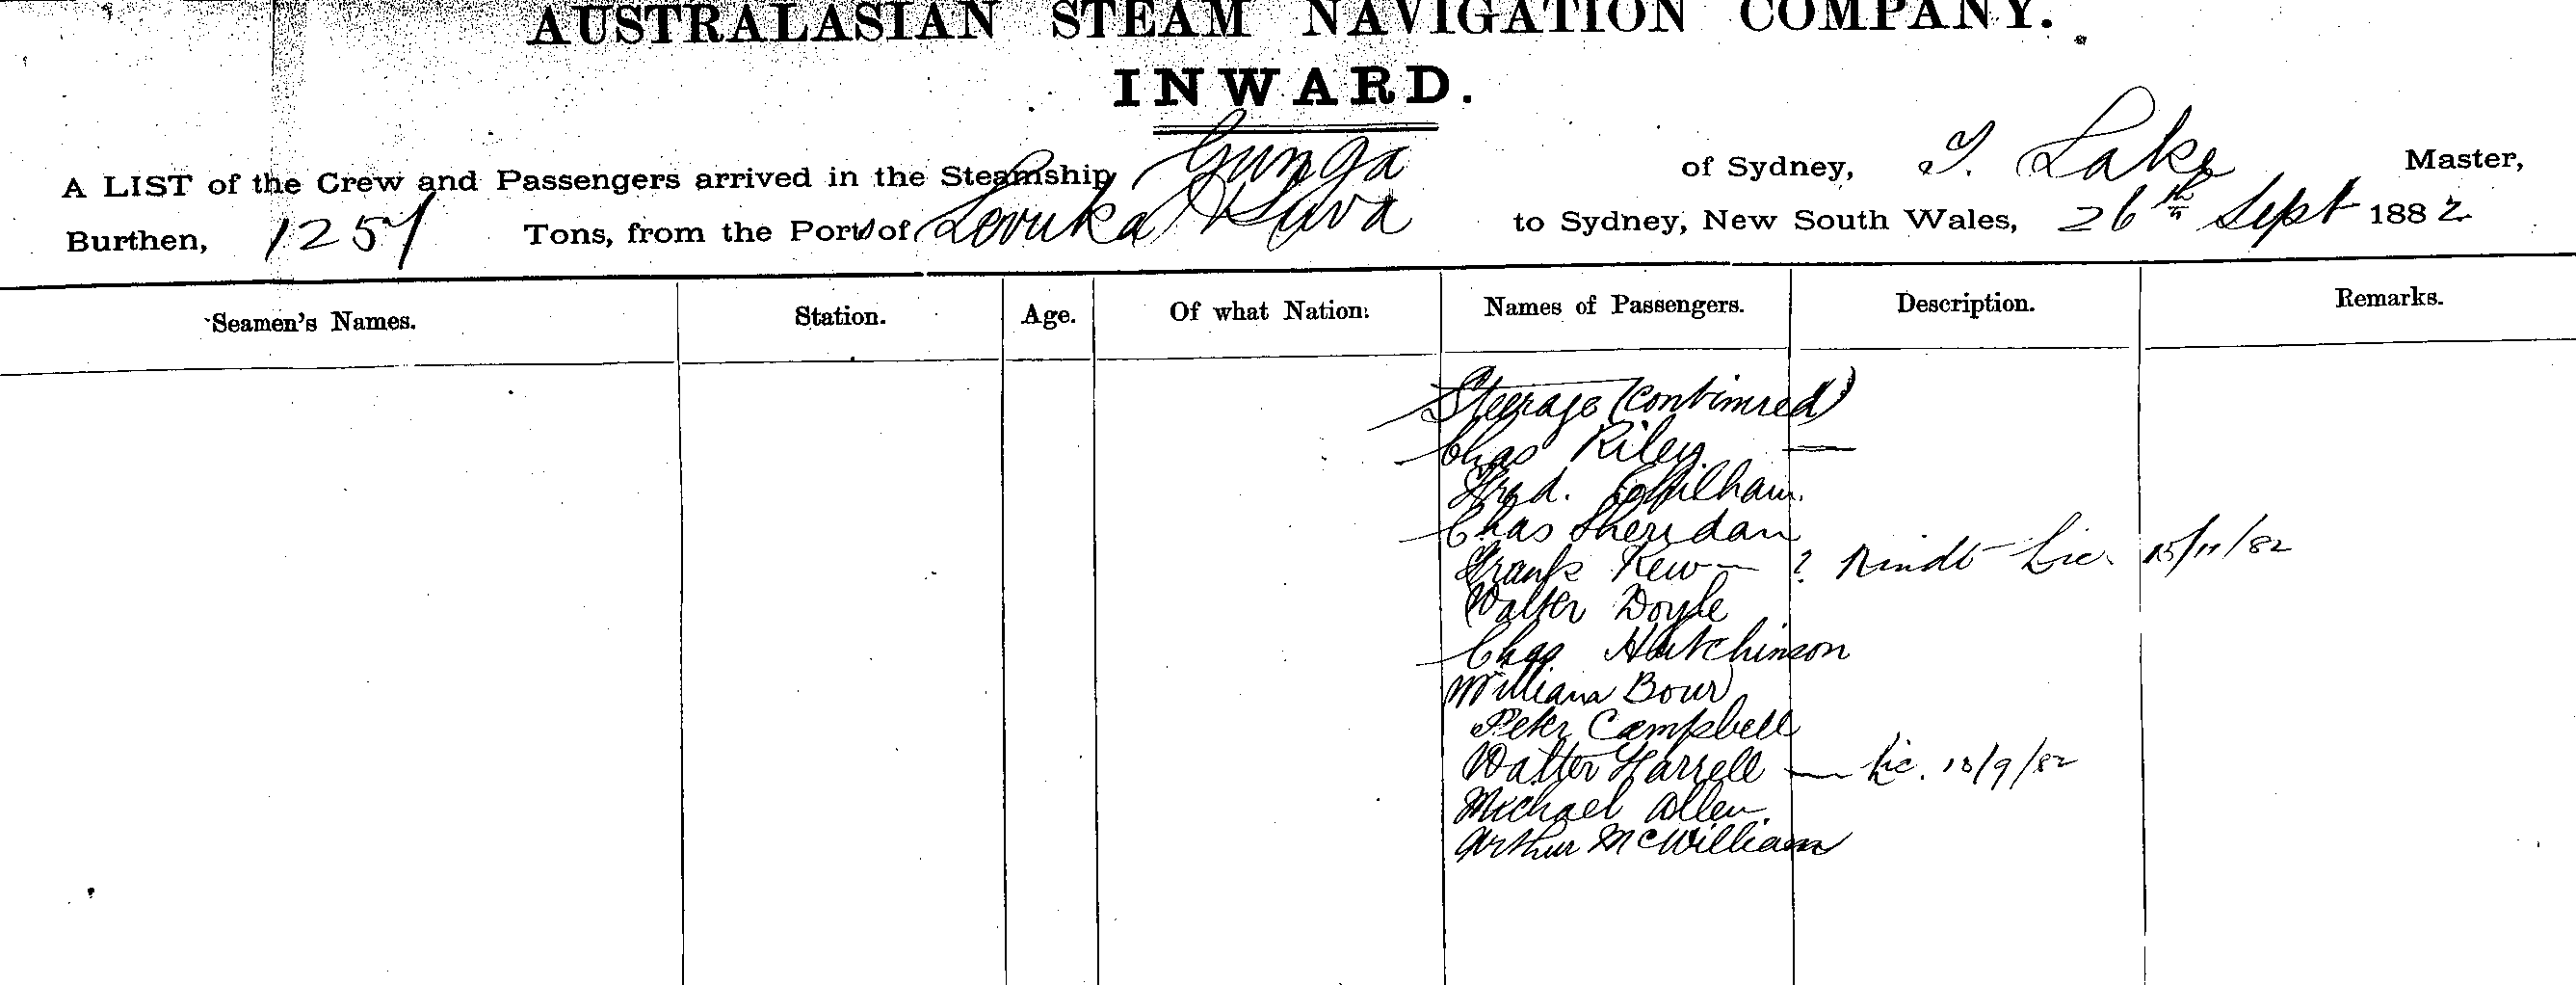 AUSTRALASIAN STEAM NAVIGATION COMPANY.
INWARD.
A LIST of the Crew and Passengers arrived in the Steamship Gunga of Sydney, T. Lake Master,
Burthen, 1257 Tons, from the Ports of Levuka & Suva to Sydney, New South Wales, 26th Sept 1882
Seamen's Names. Station. Age. Of what Nation. Names of Passengers. Description. Remarks.
Steerage (continued)
Chas Riley —
Fred.
Chas Sheridan
Frank Kew — ? Lic. 15/11/82
Walter Doyle
Chas Hutchinson
William Bour
Peter Campbell
Walter Farrell — Lic. 15/9/82
Michael Allen
Arthur McWilliam